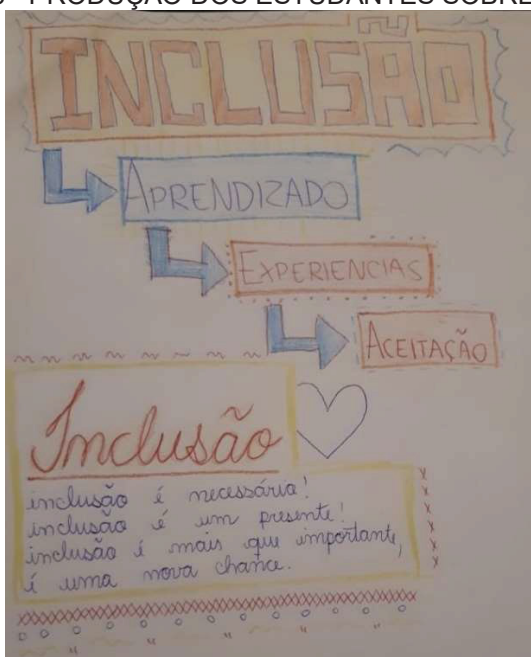 PRODUÇÃO DOS ESTUDANTES SOBRE
INCLUSÃO
APRENDIZADO
EXPERIENCIAS
ACEITAÇÃO
Inclusão
inclusão é necessária!
inclusão é um presente!
inclusão é mais que importante,
é uma nova chance.